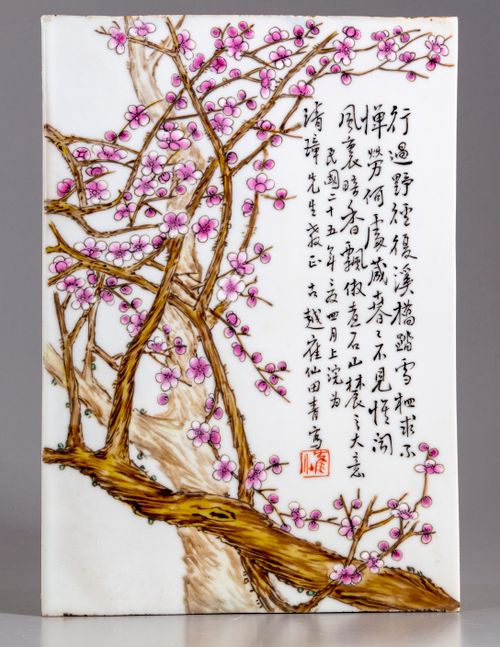 行過野徑復溪橋踏雪相求不
憚勞何處藏春〻不見惟聞
風裏暗香飄倣煮石山農之大意
民國二十五年夏四月上浣為
璋先生教正古越隺仙田青寫